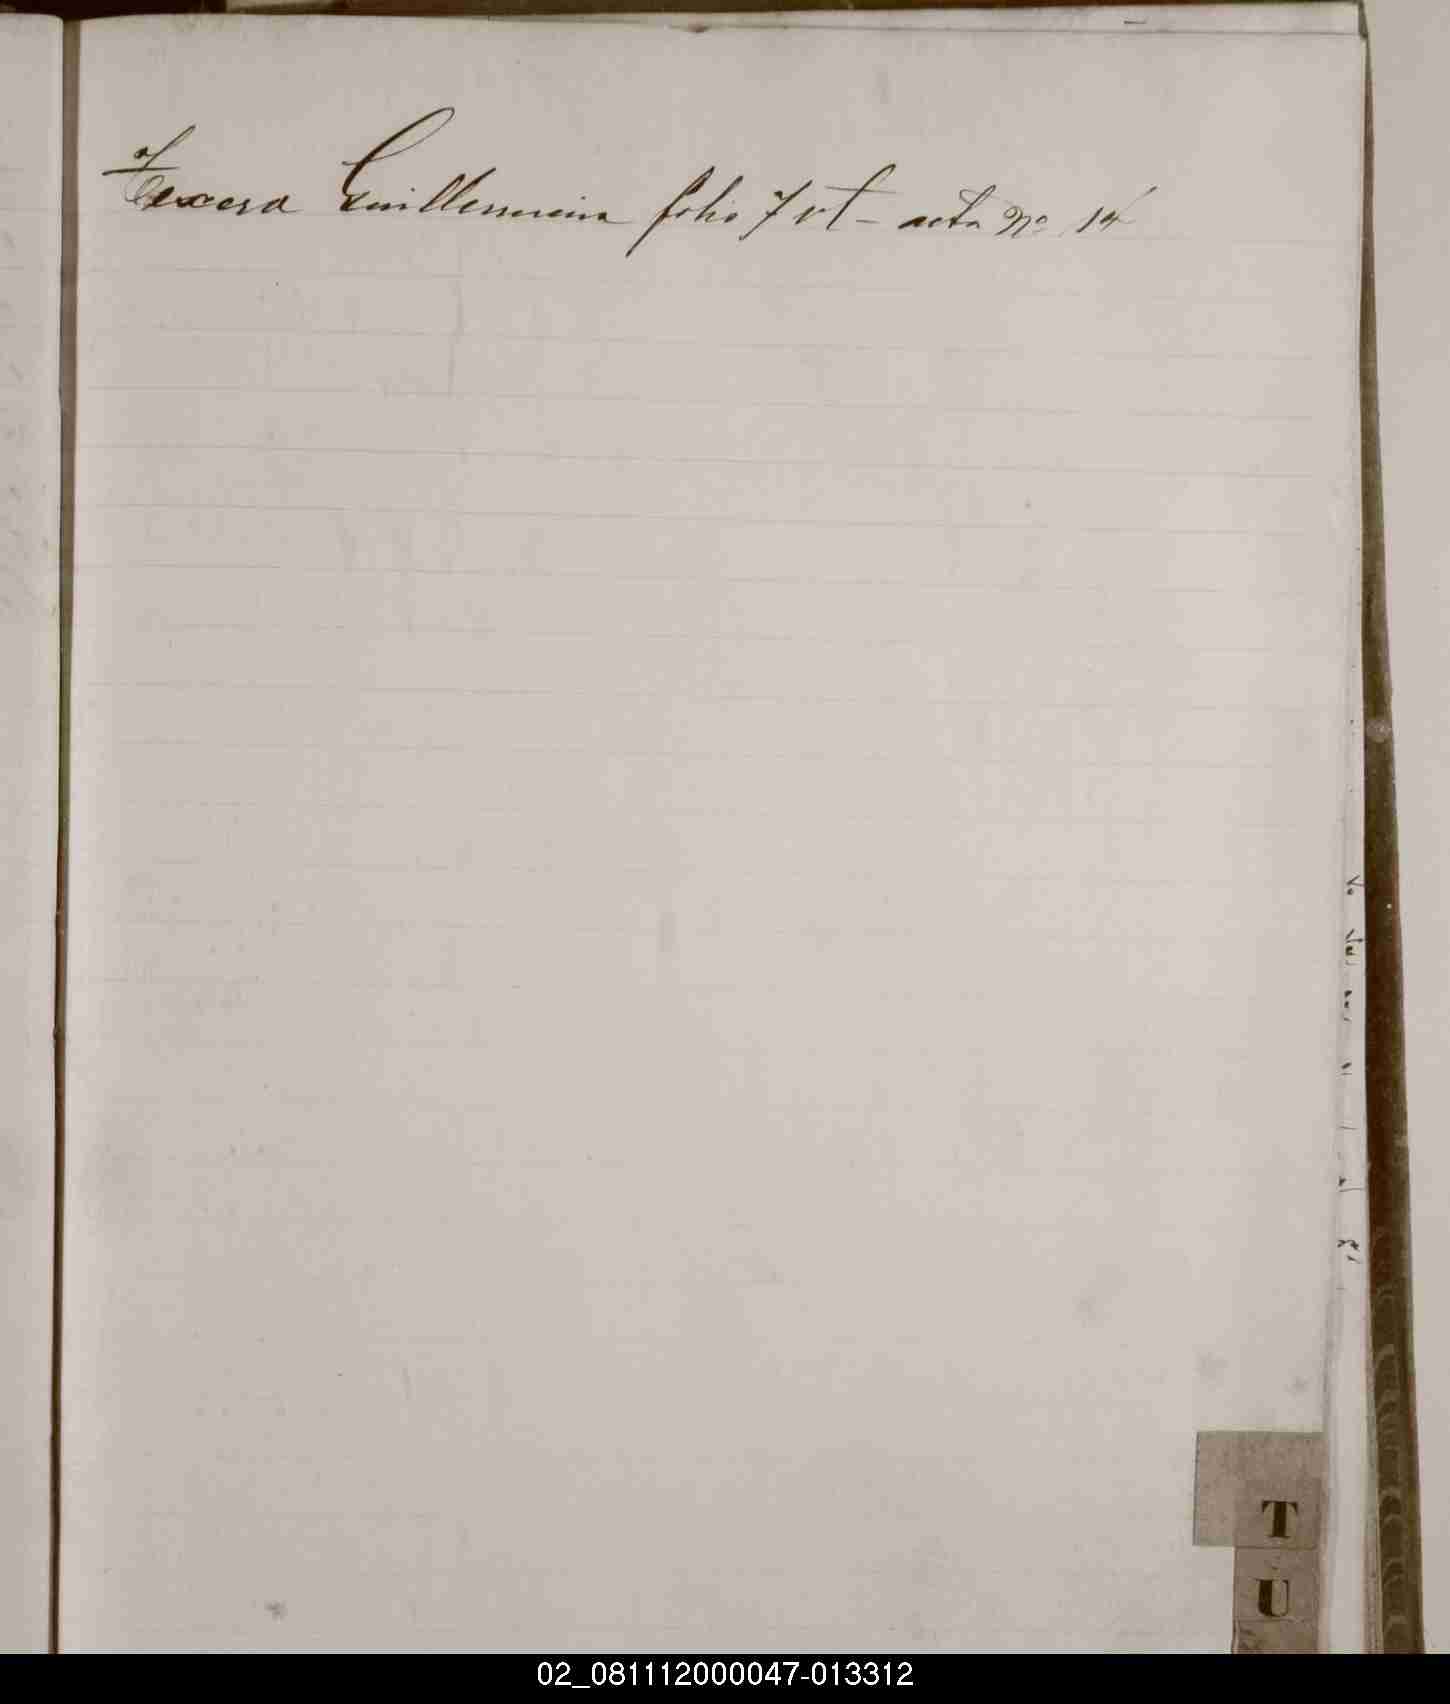 Texera Guillermina folio 7 vt - acta No 14
T
U
02_081112000047-013312